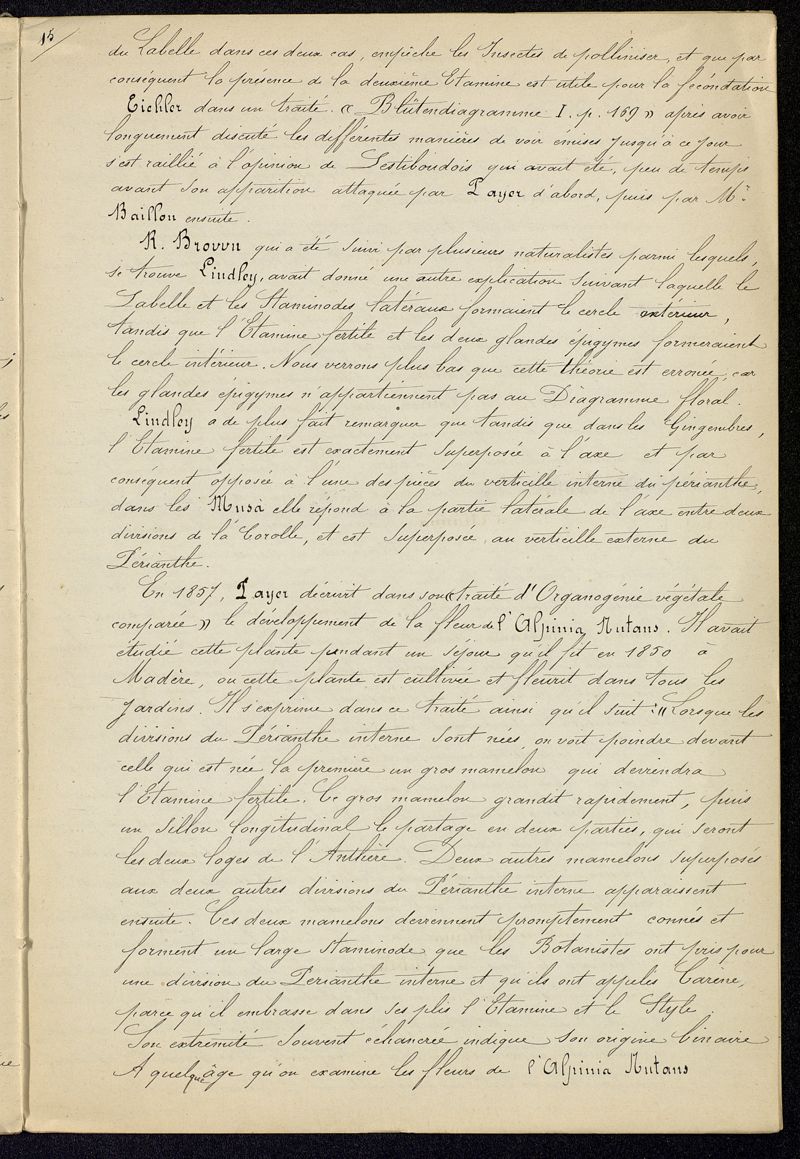 15
du Labelle dans ces deux cas, empêche les Insectes de polliniser, et que par
conséquent la présence de la deuxième Etamine est utile pour la fécondation
Eichler dans un traité. « Blütendiagramme I. p. 169 » après avoir
longuement discuté les différentes manières de voir émises jusqu'à ce jour
s'est raillié à l'opinion de Lestiboudois qui avait été, peu de temps
avant son apparition attaquée par Payer d'abord, puis par Mr
Baillon ensuite.
R. Brown qui a été suivi par plusieurs naturalistes parmi lesquels,
se trouve Lindley, avait donné une autre explication suivant laquelle le
Labelle et les Staminodes latéraux formaient le cercle extérieur,
tandis que l'Etamine fertile et les deux glandes épigymes formeraient
le cercle intérieur. Nous verrons plus bas que cette théorie est erronée, car
les glandes épigymes n'appartiennent pas au Diagramme floral.
Lindley a de plus fait remarquer que tandis que dans les Gingembres,
l'Etamine fertile est exactement superposée à l'axe et par
conséquent opposée à l'une des pièces du verticille interne du périanthe,
dans les Musa elle répond à la partie latérale de l'axe entre deux
divisions de la Corolle, et est superposée au verticille externe du
Périanthe.
En 1857, Payer décrivit dans son « traité d'Organogénie végétale
comparée » le développement de la fleur de l'Alpinia Nutans. Il avait
étudié cette plante pendant un séjour qu'il fit en 1850 à
Madère, ou cette plante est cultivée et fleurit dans tous les
Jardins. Il s'exprime dans ce traité ainsi qu'il suit : "Lorsque les
divisions du Périanthe interne sont nées, on voit poindre devant
celle qui est née la première un gros mamelon qui deviendra
l'Etamine fertile. Ce gros mamelon grandit rapidement, puis
un sillon longitudinal le partage en deux parties, qui seront
les deux loges de l'Anthère. Deux autres mamelons superposés
aux deux autres divisions du Périanthe interne apparaissent
ensuite. Ces deux mamelons deviennent promptement connés et
forment un large staminode que les Botanistes ont pris pour
une division du Périanthe interne et qu'ils ont appelés Carène,
parce qu'il embrasse dans ses plis l'Etamine et le Style
Son extrémité souvent échancrée indique son origine binaire
A quelque âge qu'on examine les fleurs de l'Alpinia Nutans